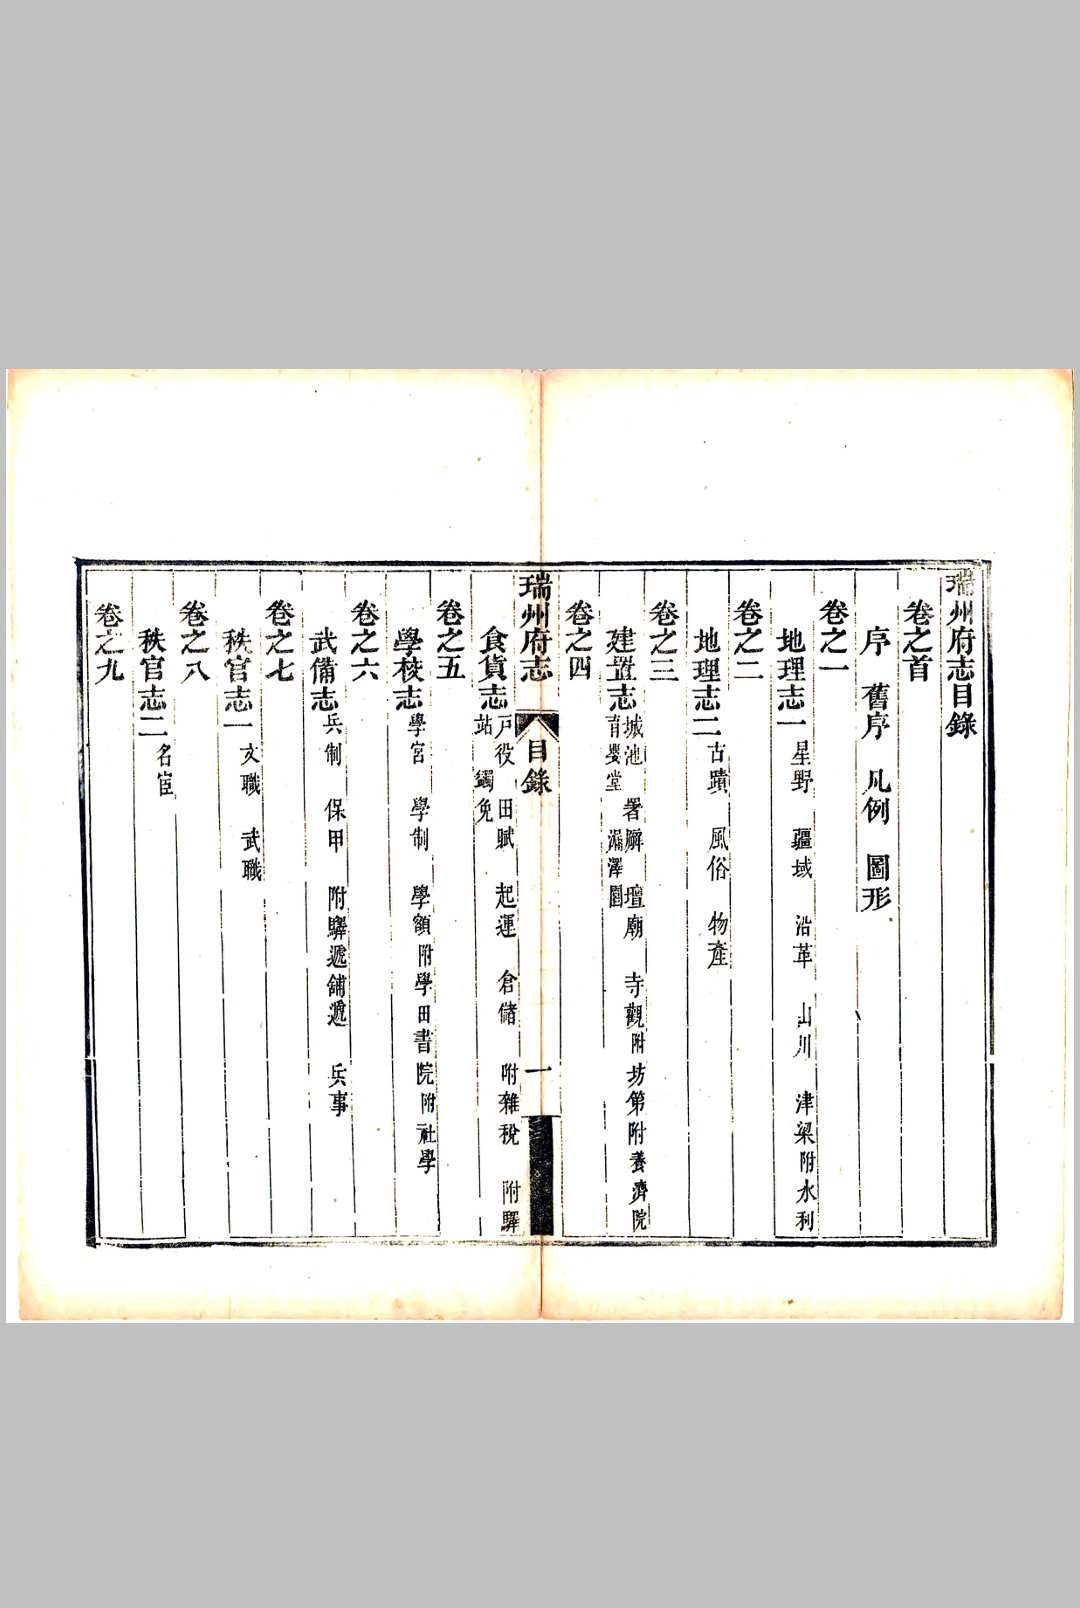 瑞州府志目錄
卷之首
序　舊序　凡例　圖形
卷之一
地理志一　星野　疆域　沿革　山川　津梁附水利
卷之二
地理志二　古蹟　風俗　物產
卷之三
建置志　城池　署廨　壇廟　寺觀附　坊第附養濟院
育嬰堂　漏澤園
卷之四
瑞州府志　目錄　一
食貨志　戶役　田賦　起運　倉儲　附雜稅　附驛
站　蠲免
卷之五
學校志　學宮　學制　學額附學田書院附社學
卷之六
武備志　兵制　保甲　附驛遞舖遞　兵事
卷之七
秩官志一　文職　武職
卷之八
秩官志二　名宦
卷之九